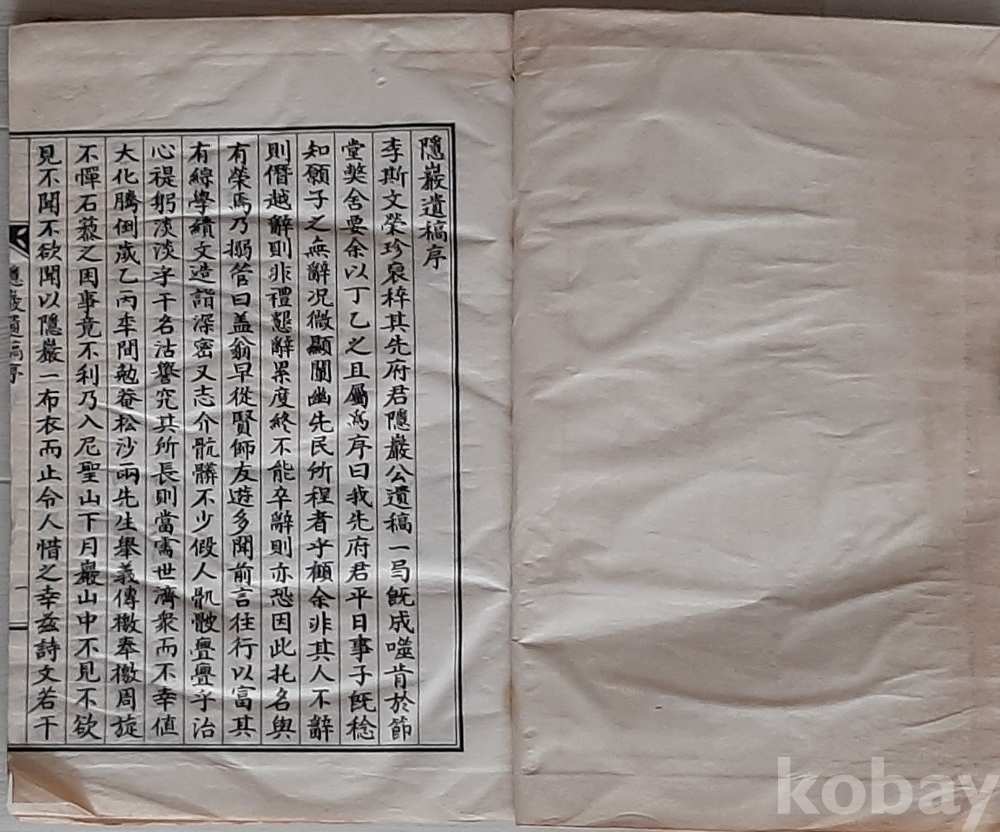 隱巖遺稿序
李斯文榮珍裒稡其先府君隱巖公遺稿一局旣成噬肯於節
堂獘舍要余以丁乙之且屬爲序曰我先府君平日事子旣稔
知願子之無辭况微顯闡幽先民所程者乎顧余非其人不辭
則僭越辭則非禮懇辭累度終不能卒辭則亦恐因此托名與
有榮焉乃搦管曰盖翁早從賢師友遊多聞前言往行以富其
有綜學績文造詣深密又志介骯髒不少假人骫骳亹亹乎治
心禔躬淡淡乎干名沽譽究其所長則當需世濟衆而不幸值
大化騰倒歲乙丙年間勉菴松沙兩先生擧義傳檄奉檄周旋
不憚石蔾之困事竟不利乃入尼聖山下月巖山中不見不欲
見不聞不欲聞以隱巖一布衣而止令人惜之幸玆詩文若干
隱巖遺稿序
一
kobay